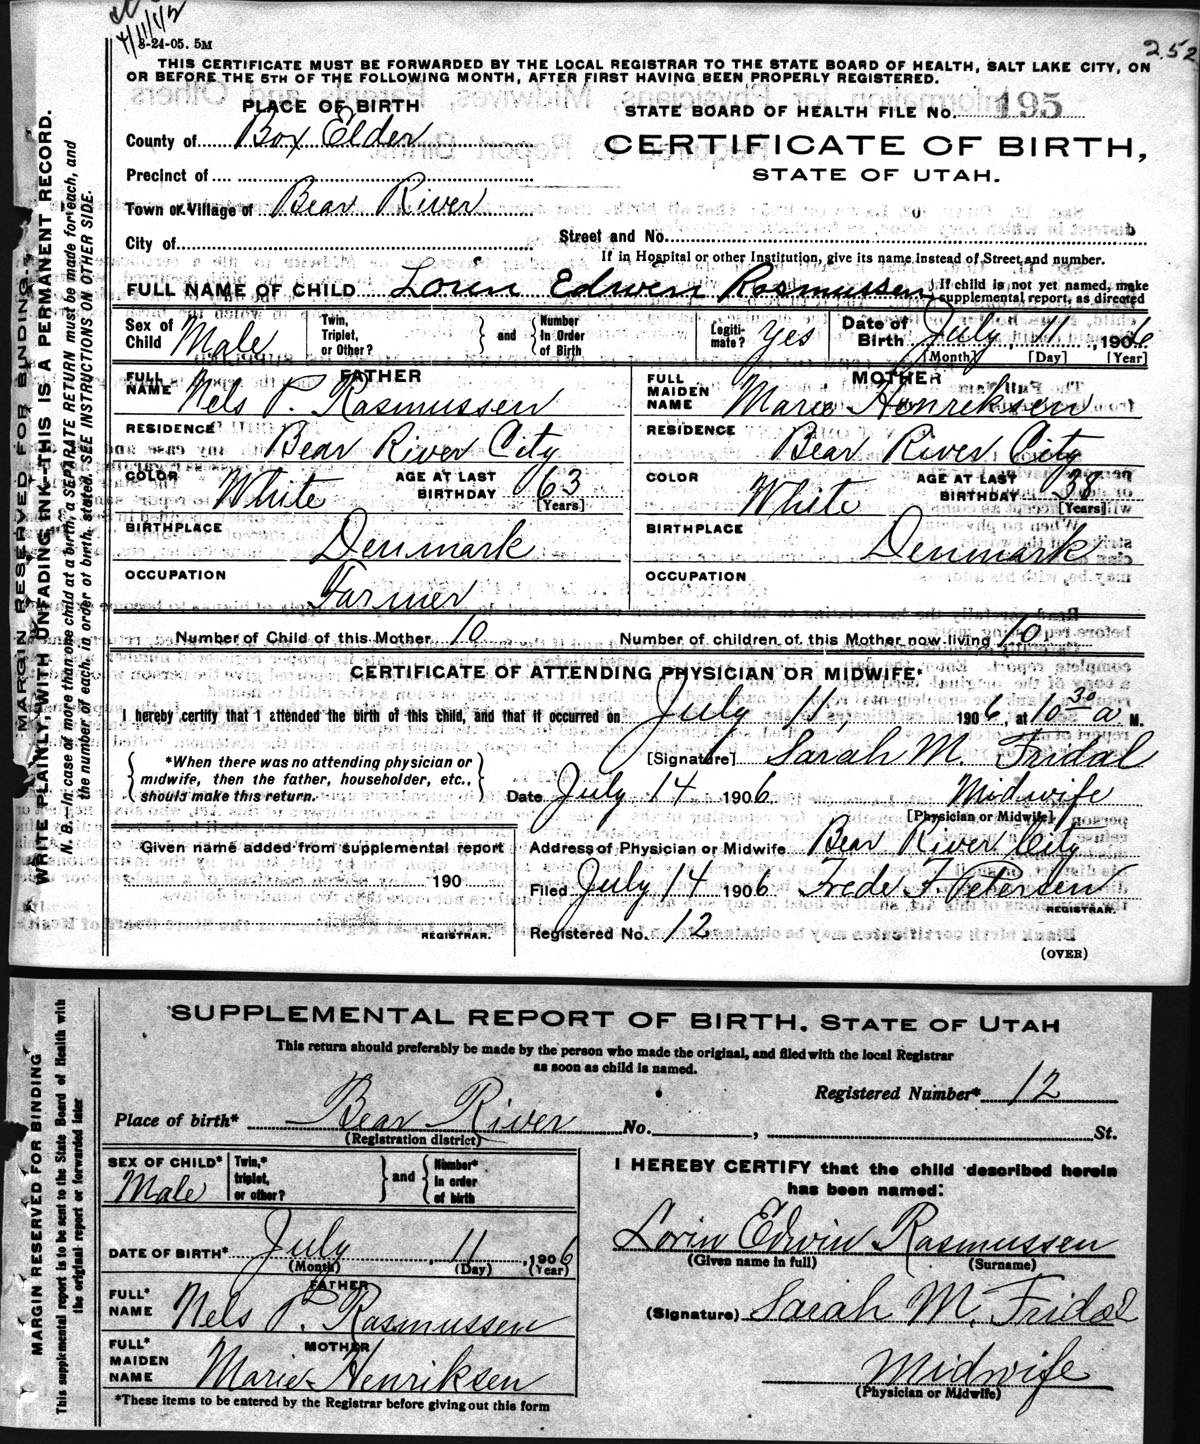 4/11/42
8-24-05. 5M
252
THIS CERTIFICATE MUST BE FORWARDED BY THE LOCAL REGISTRAR TO THE STATE BOARD OF HEALTH, SALT LAKE CITY, ON
OR BEFORE THE 5TH OF THE FOLLOWING MONTH, AFTER FIRST HAVING BEEN PROPERLY REGISTERED.
MARGIN RESERVED FOR BINDING.
WRITE PLAINLY, WITH UNFADING INK—THIS IS A PERMANENT RECORD.
N. B.—In case of more than one child at a birth, a SEPARATE RETURN must be made for each, and
the number of each, in order of birth, stated. SEE INSTRUCTIONS ON OTHER SIDE.
PLACE OF BIRTH
STATE BOARD OF HEALTH FILE No. 195
County of Box Elder
CERTIFICATE OF BIRTH,
STATE OF UTAH.
Precinct of
Town or Village of Bear River
City of
Street and No.
If in Hospital or other Institution, give its name instead of Street and number.
FULL NAME OF CHILD Lorin Edwin Rasmussen
If child is not yet named, make
supplemental report, as directed
Sex of Child Male
Twin, Triplet, or Other?
and
Number in Order of Birth
Legiti-mate? yes
Date of Birth July 11, 1906
[Month] [Day] [Year]
FATHER
FULL NAME Nels P. Rasmussen
RESIDENCE Bear River City
COLOR White AGE AT LAST BIRTHDAY 63
[Years]
BIRTHPLACE Denmark
OCCUPATION Farmer
MOTHER
FULL MAIDEN NAME Marie Henriksen
RESIDENCE Bear River City
COLOR White AGE AT LAST BIRTHDAY 38
[Years]
BIRTHPLACE Denmark
OCCUPATION
Number of Child of this Mother 10 Number of children of this Mother now living 10
CERTIFICATE OF ATTENDING PHYSICIAN OR MIDWIFE*
I hereby certify that I attended the birth of this child, and that it occurred on July 11 1906, at 10 30 a M.
*When there was no attending physician or
midwife, then the father, householder, etc.,
should make this return.
[Signature] Sarah M. Fridal
Date July 14 1906 Midwife
[Physician or Midwife]
Given name added from supplemental report
190
REGISTRAR.
Address of Physician or Midwife Bear River City
Filed July 14 1906 Frede F. Petersen
REGISTRAR.
Registered No. 12
(OVER)
MARGIN RESERVED FOR BINDING
This supplemental report is to be sent to the State Board of Health with
the original report or forwarded later
SUPPLEMENTAL REPORT OF BIRTH. STATE OF UTAH
This return should preferably be made by the person who made the original, and filed with the local Registrar
as soon as child is named.
Registered Number* 12
Place of birth* Bear River No. , St.
(Registration district)
SEX OF CHILD* Male
Twin,* triplet, or other?
and
Number* in order of birth
DATE OF BIRTH* July, 11, 1906
(Month) (Day) (Year)
FATHER
FULL* NAME Nels P. Rasmussen
MOTHER
FULL* MAIDEN NAME Marie Henriksen
*These items to be entered by the Registrar before giving out this form
I HEREBY CERTIFY that the child described herein
has been named:
Lorin Edwin Rasmussen
(Given name in full) (Surname)
(Signature) Sarah M. Fridal
Midwife
(Physician or Midwife)